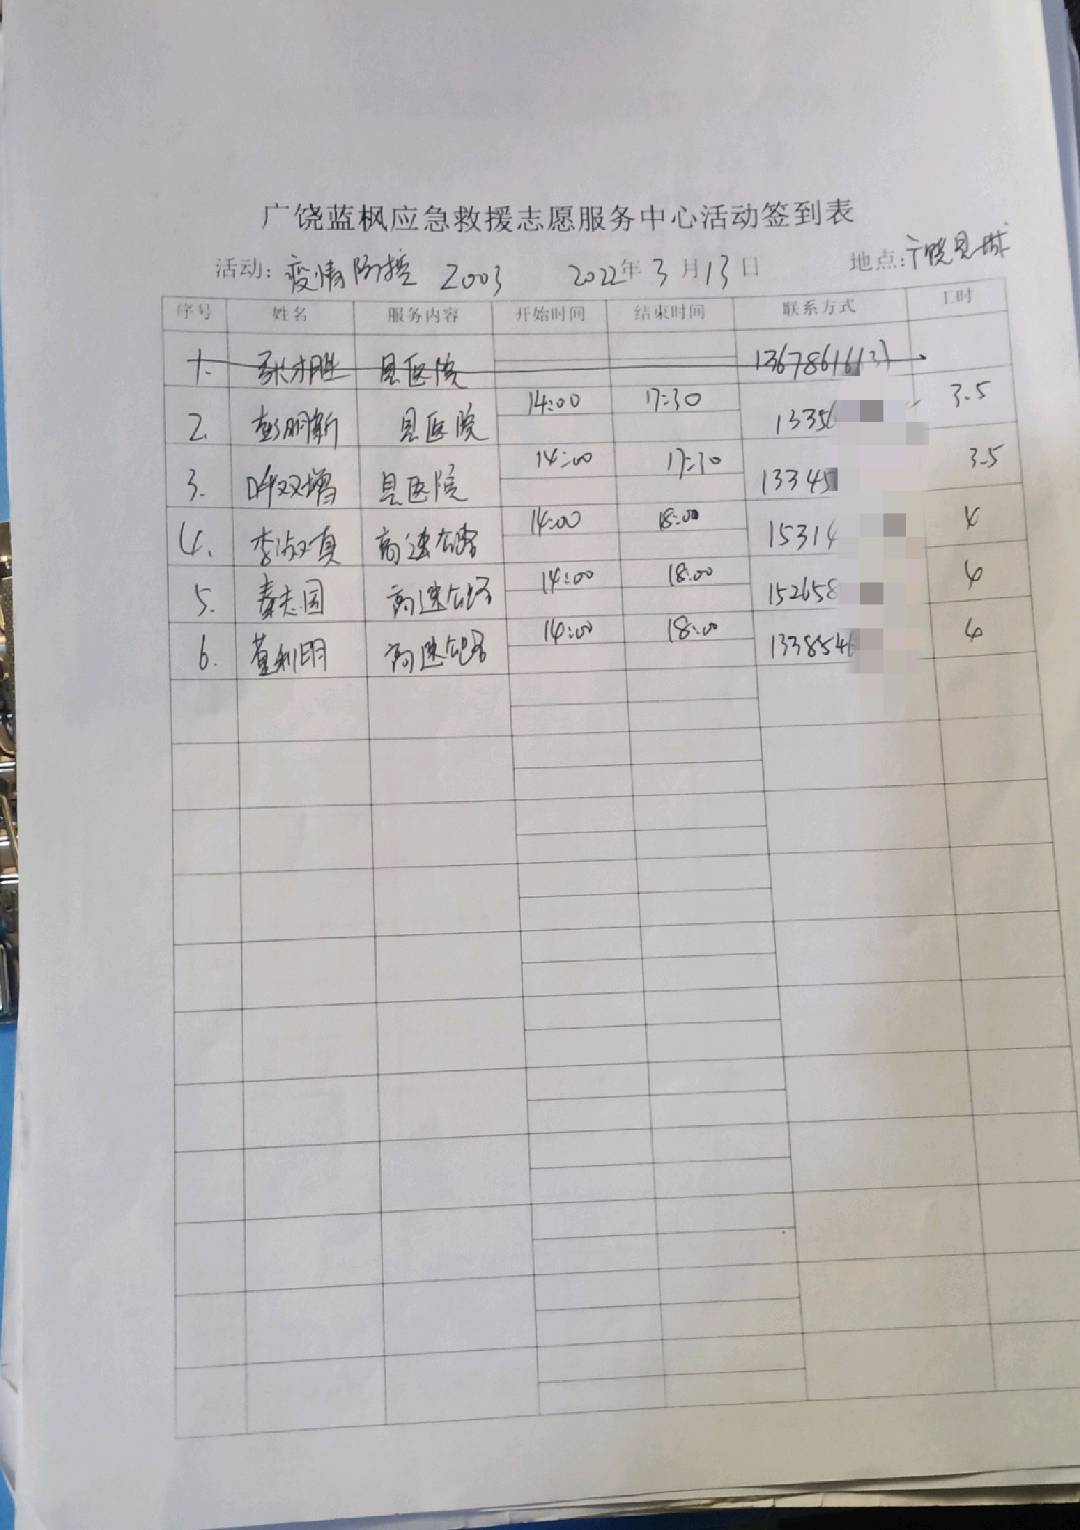 广饶蓝枫应急救援志愿服务中心活动签到表
活动: 疫情防控 2003 2022年 3月13日 地点: 广饶县城
序号 姓名 服务内容 开始时间 结束时间 联系方式 工时
1. 县医院
2. 彭明新 县医院 14:00 17:30 13356 3.5
3. 双增 县医院 14:00 17:30 13345 3.5
4. 李淑真 高速公路 14:00 18:00 15314 4
5. 秦志国 高速公路 14:00 18:00 152658 4
6. 董利明 高速公路 14:00 18:00 1338546 4